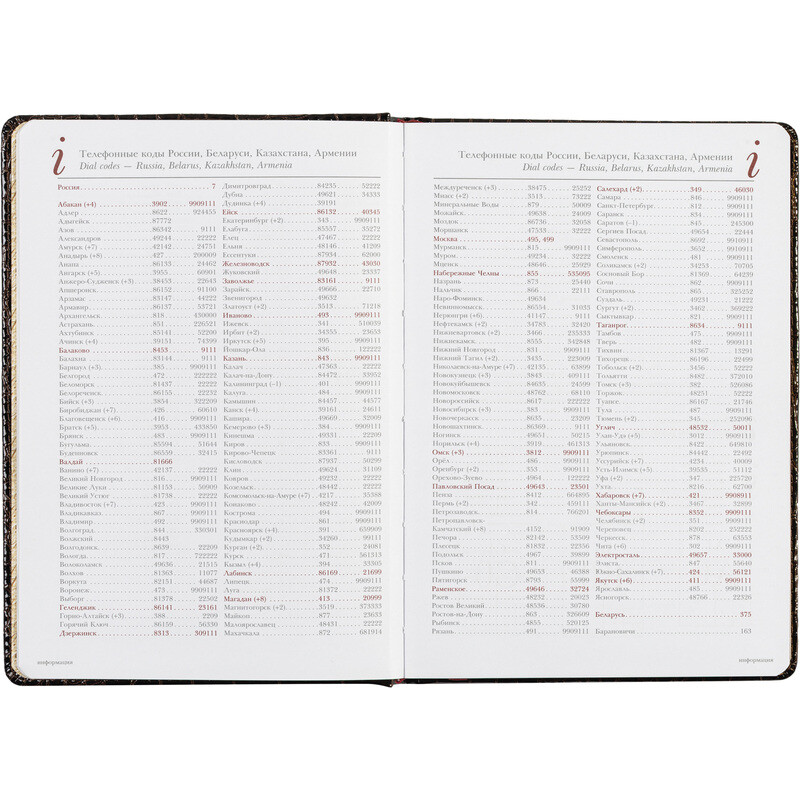 i
Телефонные коды России, Беларуси, Казахстана, Армении
Dial codes — Russia, Belarus, Kazakhstan, Armenia
Россия 7
Абакан (+4) 3902 9909111
Адлер 8622 924455
Адыгейск 87772
Азов 86342 9111
Александров 49244 22222
Амурск (+7) 42142 24751
Анадырь (+8) 427 200009
Анапа 86133 24462
Ангарск (+5) 3955 60901
Анжеро-Судженск (+3) 38453 22643
Апшеронск 86152 91100
Арзамас 83147 44222
Армавир 86137 53721
Архангельск 818 430000
Астрахань 851 226521
Ахтубинск 85141 52200
Ачинск (+4) 39151 74399
Балаково 8453 9111
Балахна 83144 9111
Барнаул (+3) 385 9909111
Белгород 472 22222
Беломорск 81437 22222
Белореченск 86155 22232
Бийск (+3) 3854 322209
Биробиджан (+7) 426 60610
Благовещенск (+6) 416 9909111
Братск (+5) 3953 433850
Брянск 483 9909111
Бугульма 85594 51644
Буденновск 86559 32415
Валдай 81666
Ванино (+7) 42137 22222
Великий Новгород 816 9909111
Великие Луки 81153 50909
Великий Устюг 81738 22222
Владивосток (+7) 423 9909111
Владикавказ 867 9909111
Владимир 492 9909111
Волгоград 844 330301
Волжский 8443
Волгодонск 8639 22209
Вологда 817 722222
Волоколамск 49636 21515
Волхов 81363 11077
Воркута 82151 44687
Воронеж 473 9909111
Выборг 81378 22502
Геленджик 86141 23161
Горно-Алтайск (+3) 388 2209
Горячий Ключ 86159 56330
Дзержинск 8313 309111
Димитровград 84235 52222
Дубна 49621 34333
Дудинка (+4) 39191
Ейск 86132 40345
Екатеринбург (+2) 343 9909111
Елабуга 85557 35272
Елец 47467 22222
Ельня 48146 41209
Ессентуки 87934 62000
Железноводск 87932 43030
Жуковский 49648 23337
Заволжье 83161 9111
Зарайск 49666 22710
Звенигород 49632
Златоуст (+2) 3513 71218
Иваново 493 9909111
Ижевск 341 510039
Ирбит (+2) 34355 23653
Иркутск (+5) 395 9909111
Йошкар-Ола 836 122222
Казань 843 9909111
Калач 47363 22222
Калач-на-Дону 84472 33952
Калининград (–1) 401 9909111
Калуга 484 9909111
Камышин 84457 44577
Канск (+4) 39161 24611
Кашира 49669 32009
Кемерово (+3) 384 9909111
Кинешма 49331 22209
Киров 833 9909111
Кирово-Чепецк 83361 9111
Кисловодск 87937 50299
Клин 49624 31109
Ковров 49232 22222
Козельск 48442 22222
Комсомольск-на-Амуре (+7) 4217 35388
Конаково 48242 42009
Кострома 494 9909111
Краснодар 861 9909111
Красноярск (+4) 391 659909
Кудымкар (+2) 34260 99111
Курган (+2) 352 24081
Курск 471 561313
Кызыл (+4) 394 33305
Лабинск 86169 21699
Липецк 474 9909111
Луга 81372 22222
Магадан (+8) 413 20999
Магнитогорск (+2) 3519 373333
Майкоп 877 23633
Малоярославец 48431 22222
Махачкала 872 681914
информация
i
Телефонные коды России, Беларуси, Казахстана, Армении
Dial codes — Russia, Belarus, Kazakhstan, Armenia
Междуреченск (+3) 38475 25252
Миасс (+2) 3513 73222
Минеральные Воды 879 50009
Можайск 49638 24009
Мозжок 86736 32058
Моршанск 47533 32222
Москва 495, 499
Мурманск 815 9909111
Муром 49234 32222
Мценск 48646 25929
Набережные Челны 855 535095
Назрань 873 25440
Нальчик 866 22111
Наро-Фоминск 49634
Невинномысск 86554 31033
Нерюнгри (+6) 41147 9111
Нефтекамск (+2) 34783 32420
Нижневартовск (+2) 3466 235333
Нижнекамск 8555 342848
Нижний Новгород 831 9909111
Нижний Тагил (+2) 3435 223009
Николаевск-на-Амуре (+7) 42135 63899
Новокузнецк (+3) 3843 409111
Новокуйбышевск 84635 24599
Новомосковск 48762 68110
Новороссийск 8617 222222
Новосибирск (+3) 383 9909111
Новочеркасск 8635 23209
Новошахтинск 86369 9111
Ногинск 49651 50215
Норильск (+4) 3919 461313
Омск (+3) 3812 9909111
Орёл 486 9909111
Оренбург (+2) 353 9909111
Орехово-Зуево 4964 122222
Павловский Посад 49643 23501
Пенза 8412 664895
Пермь (+2) 342 459111
Петрозаводск 814 766201
Петропавловск-
Камчатский (+8) 4152 91909
Печора 82142 53509
Плесецк 81832 22356
Подольск 4967 39809
Псков 811 9909111
Пушкино 49653 46388
Пятигорск 8793 55999
Раменское 49646 32724
Ржев 48232 29623
Ростов Великий 48536 30780
Ростов-на-Дону 863 2509666
Рыбинск 4855 520125
Рязань 491 9909111
Салехард (+2) 349 46030
Самара 846 9909111
Санкт-Петербург 812 9909111
Саранск 834 9909111
Саратов (–1) 845 245300
Сергиев Посад 49654 22444
Севастополь 8692 9910911
Симферополь 3652 9910911
Смоленск 481 9909111
Соликамск (+2) 34253 70705
Сосновый Бор 81369 64239
Сочи 862 9909111
Ставрополь 865 322525
Суздаль 49231 21222
Сургут (+2) 3462 369222
Сыктывкар 821 9909111
Таганрог 8634 9111
Тамбов 475 9909111
Тверь 482 9909111
Тихвин 81367 13291
Тихорецк 86196 22499
Тобольск (+2) 3456 52222
Тольятти 8482 372010
Томск (+3) 382 526086
Торжок 48251 52222
Туапсе 86167 21746
Тула 487 9909111
Тюмень (+2) 345 252006
Углич 48532 50011
Улан-Удэ (+5) 3012 9909111
Ульяновск 8422 649810
Урюпинск 84442 22492
Уссурийск (+7) 4234 40009
Усть-Илимск (+5) 39535 51112
Уфа (+2) 347 225720
Ухта 8216 62700
Хабаровск (+7) 421 9908911
Ханты-Мансийск (+2) 3467 32899
Чебоксары 8352 9909111
Челябинск (+2) 351 9909111
Череповец 8202 252222
Черкесск 878 63553
Чита (+6) 302 9909111
Электросталь 49657 33000
Элиста 847 35640
Южно-Сахалинск (+7) 424 56121
Якутск (+6) 411 9909111
Ярославль 485 9909111
Ясногорск 48766 22326
Беларусь 375
Барановичи 163
информация